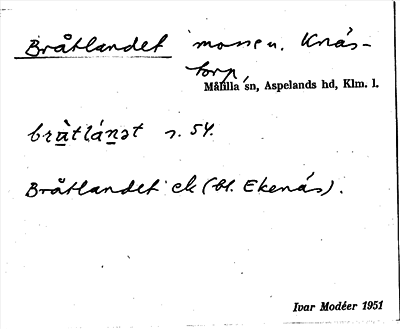 Bråtlandet mosse u. Knås-
torp
Målilla sn, Aspelands hd, Klm. l.
bràtlánət s. 54.
Bråtlandet ek (bl. Ekenäs).
Ivar Modéer 1951